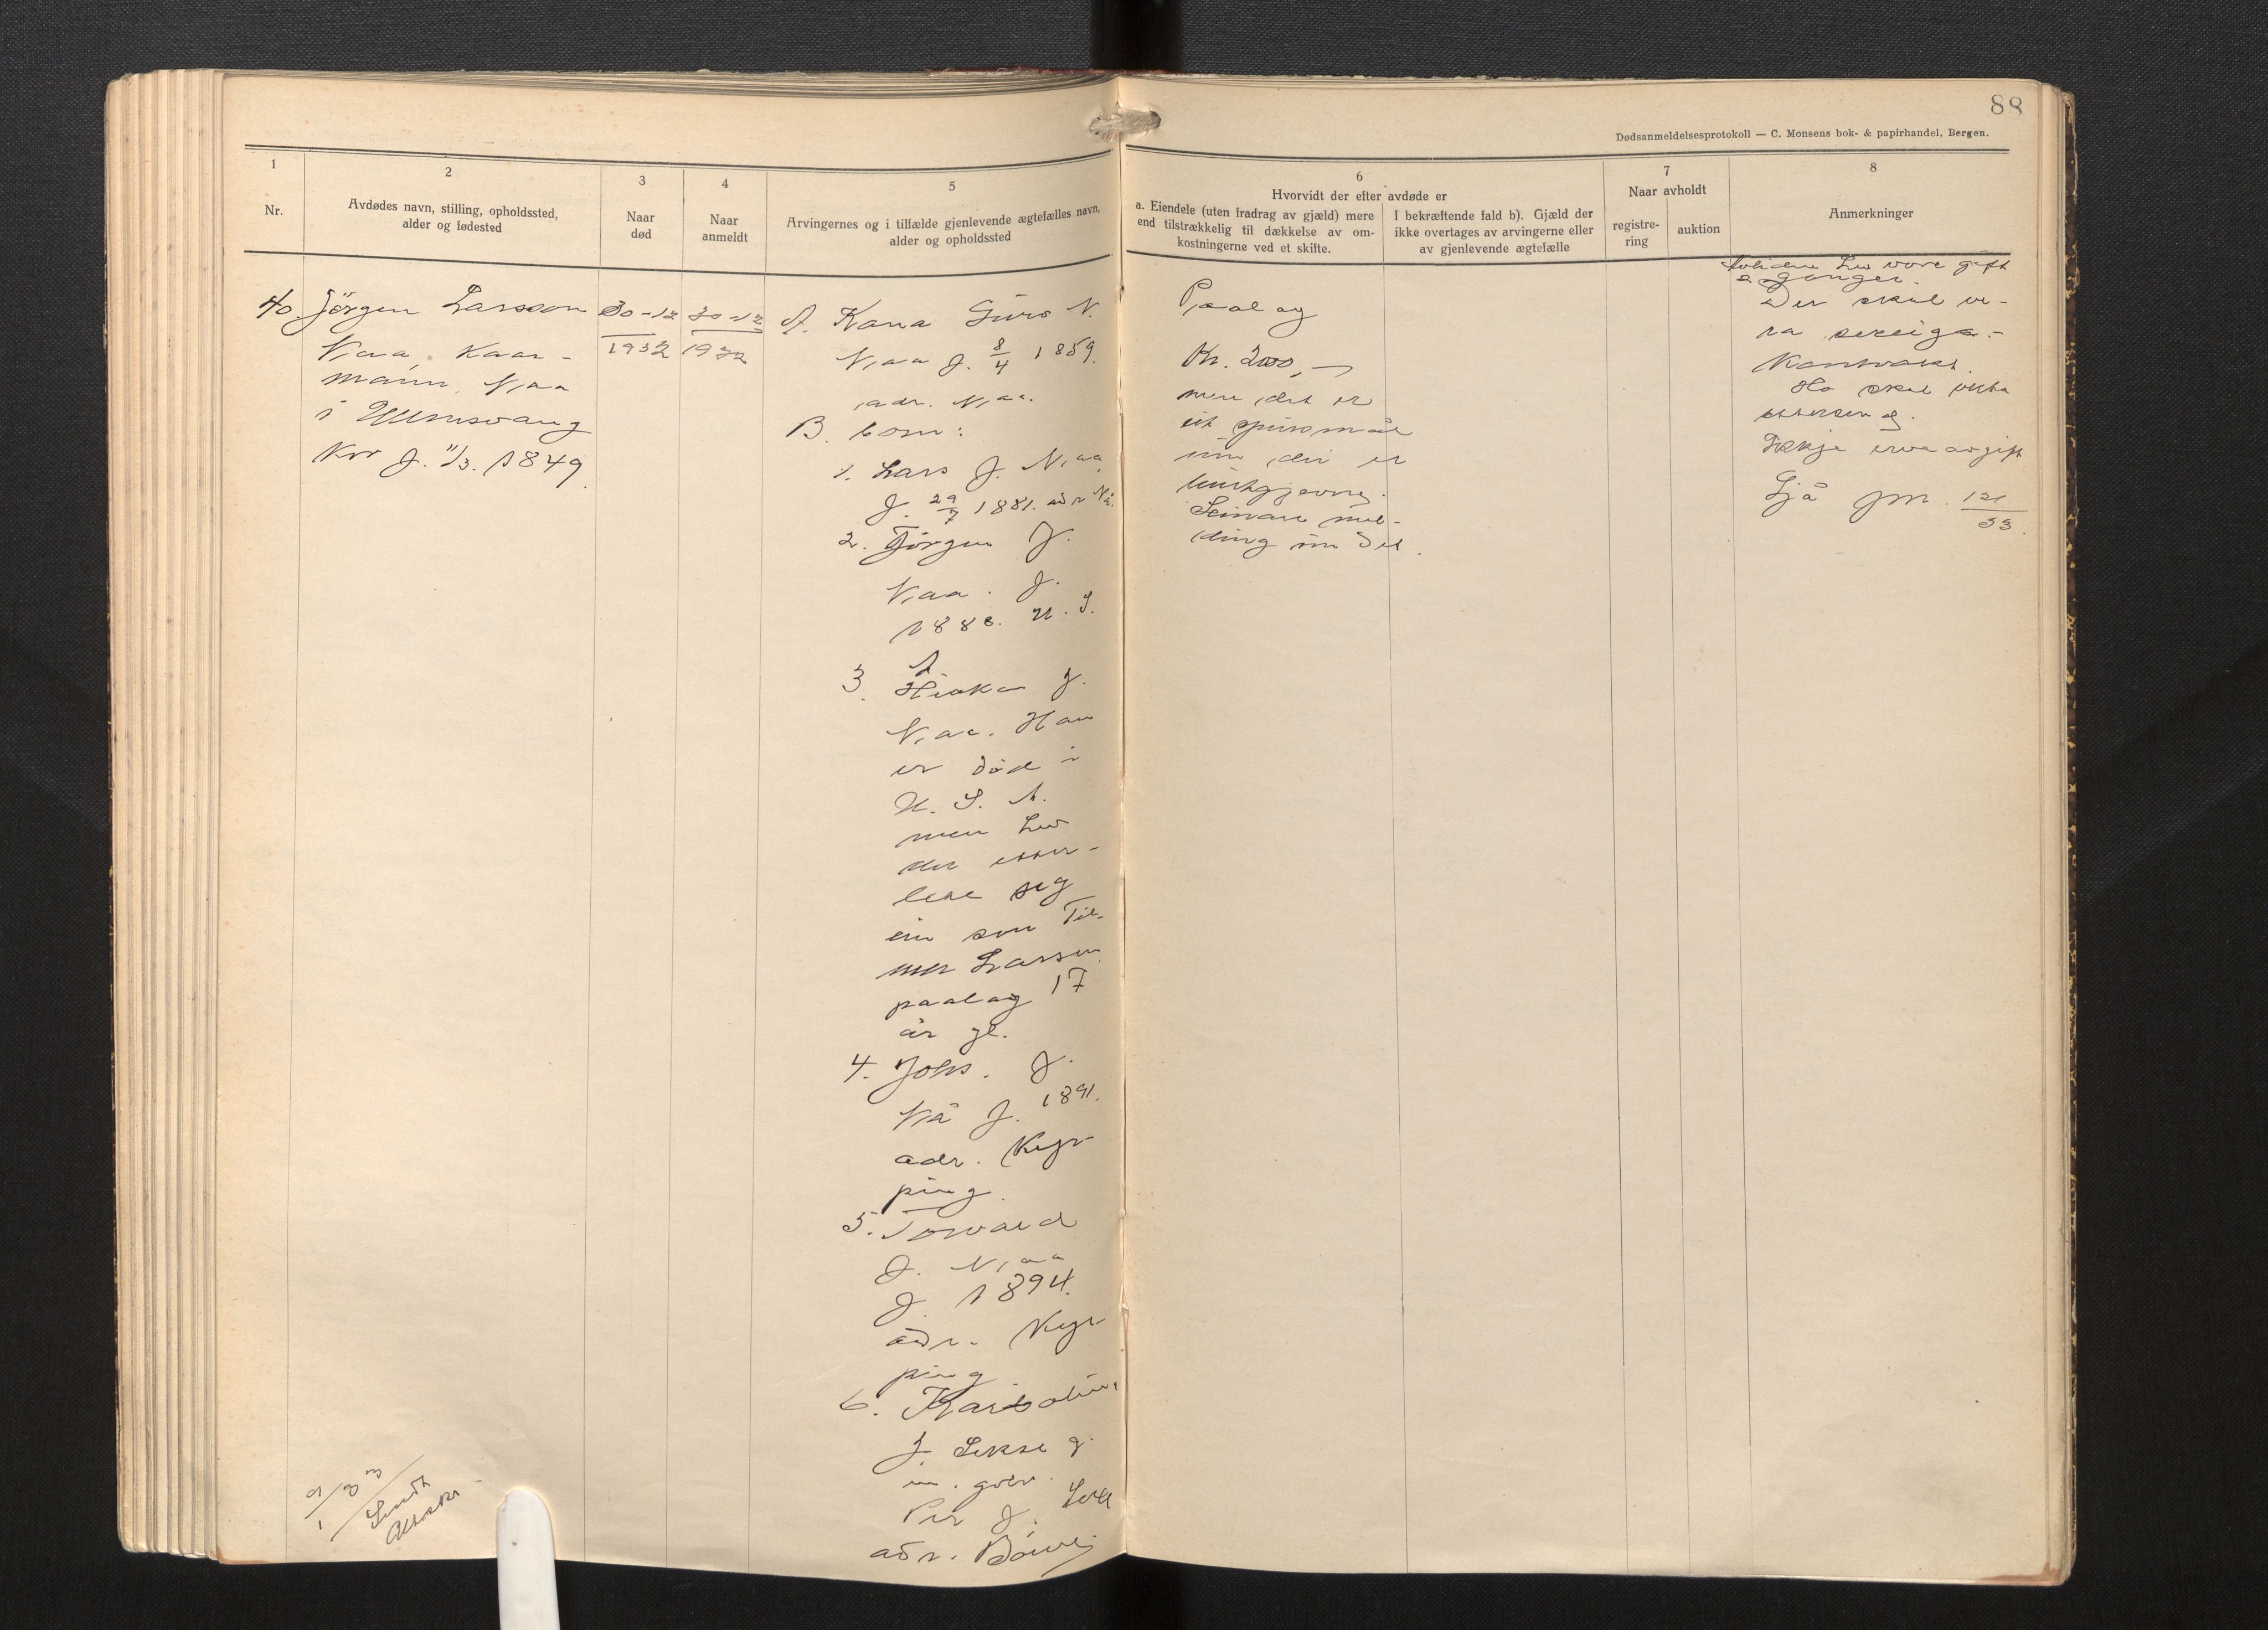 88
Dødsanmeldelsesprotokoll — C. Monsens bok- & papirhandel, Bergen.
1
Nr.
2
Avdødes navn, stilling, opholdssted,
alder og fødested
3
Naar
død
4
Naar
anmeldt
5
Arvingernes og i tilfælde gjenlevende ægtefælles navn,
alder og opholdssted
6
Hvorvidt der efter avdøde er
a. Eiendele (uten fradrag av gjæld) mere
end tilstrækkelig til dækkelse av om-
kostningerne ved et skifte.
I bekræftende fald b). Gjæld der
ikke overtages av arvingerne eller
av gjenlevende ægtefælle
7
Naar avholdt
registre-
ring
auktion
8
Anmerkninger
40. Jörgen Larsson
Naa, Kaar-
mann, Naa
i Ullensvang
f. 11/3. 1849
30-12
1932
30-12
1932
A. Kona Guro N.
Naa f. 8/4 1859.
adr. Naa.
B. born:
1. Lars J. Naa
f. 29/7 1881. adr Nå.
2. Jörgen J.
Naa. f.
1888. U. S.
A.
3. Håkon J.
Naa. Han
er död i
U. S. A.
men
etter-
lete seg
ein son
mer Larsen
paalag 17
år gl.
4. Johs. J.
Nå f. 1891.
adr. Kyr-
ping.
5. Torvald
J. Naa
f. 1894.
adr. Kyr-
ping
6.
J. Sekse g.
m. gbr.
Per J. Sekse
adr. Börve
Paalag
Kr. 2000,-
men det er
eit spursmål
um dei er
burtgjevne.
Seinare mel-
ding um det.
gift
2 gonger.
Der skal ve-
ra sereige-
kontrakt.
Ho skal
ettersen.
Ikkje erveavgift
Sjå jm. 121/33.
9/1 33
Sendt